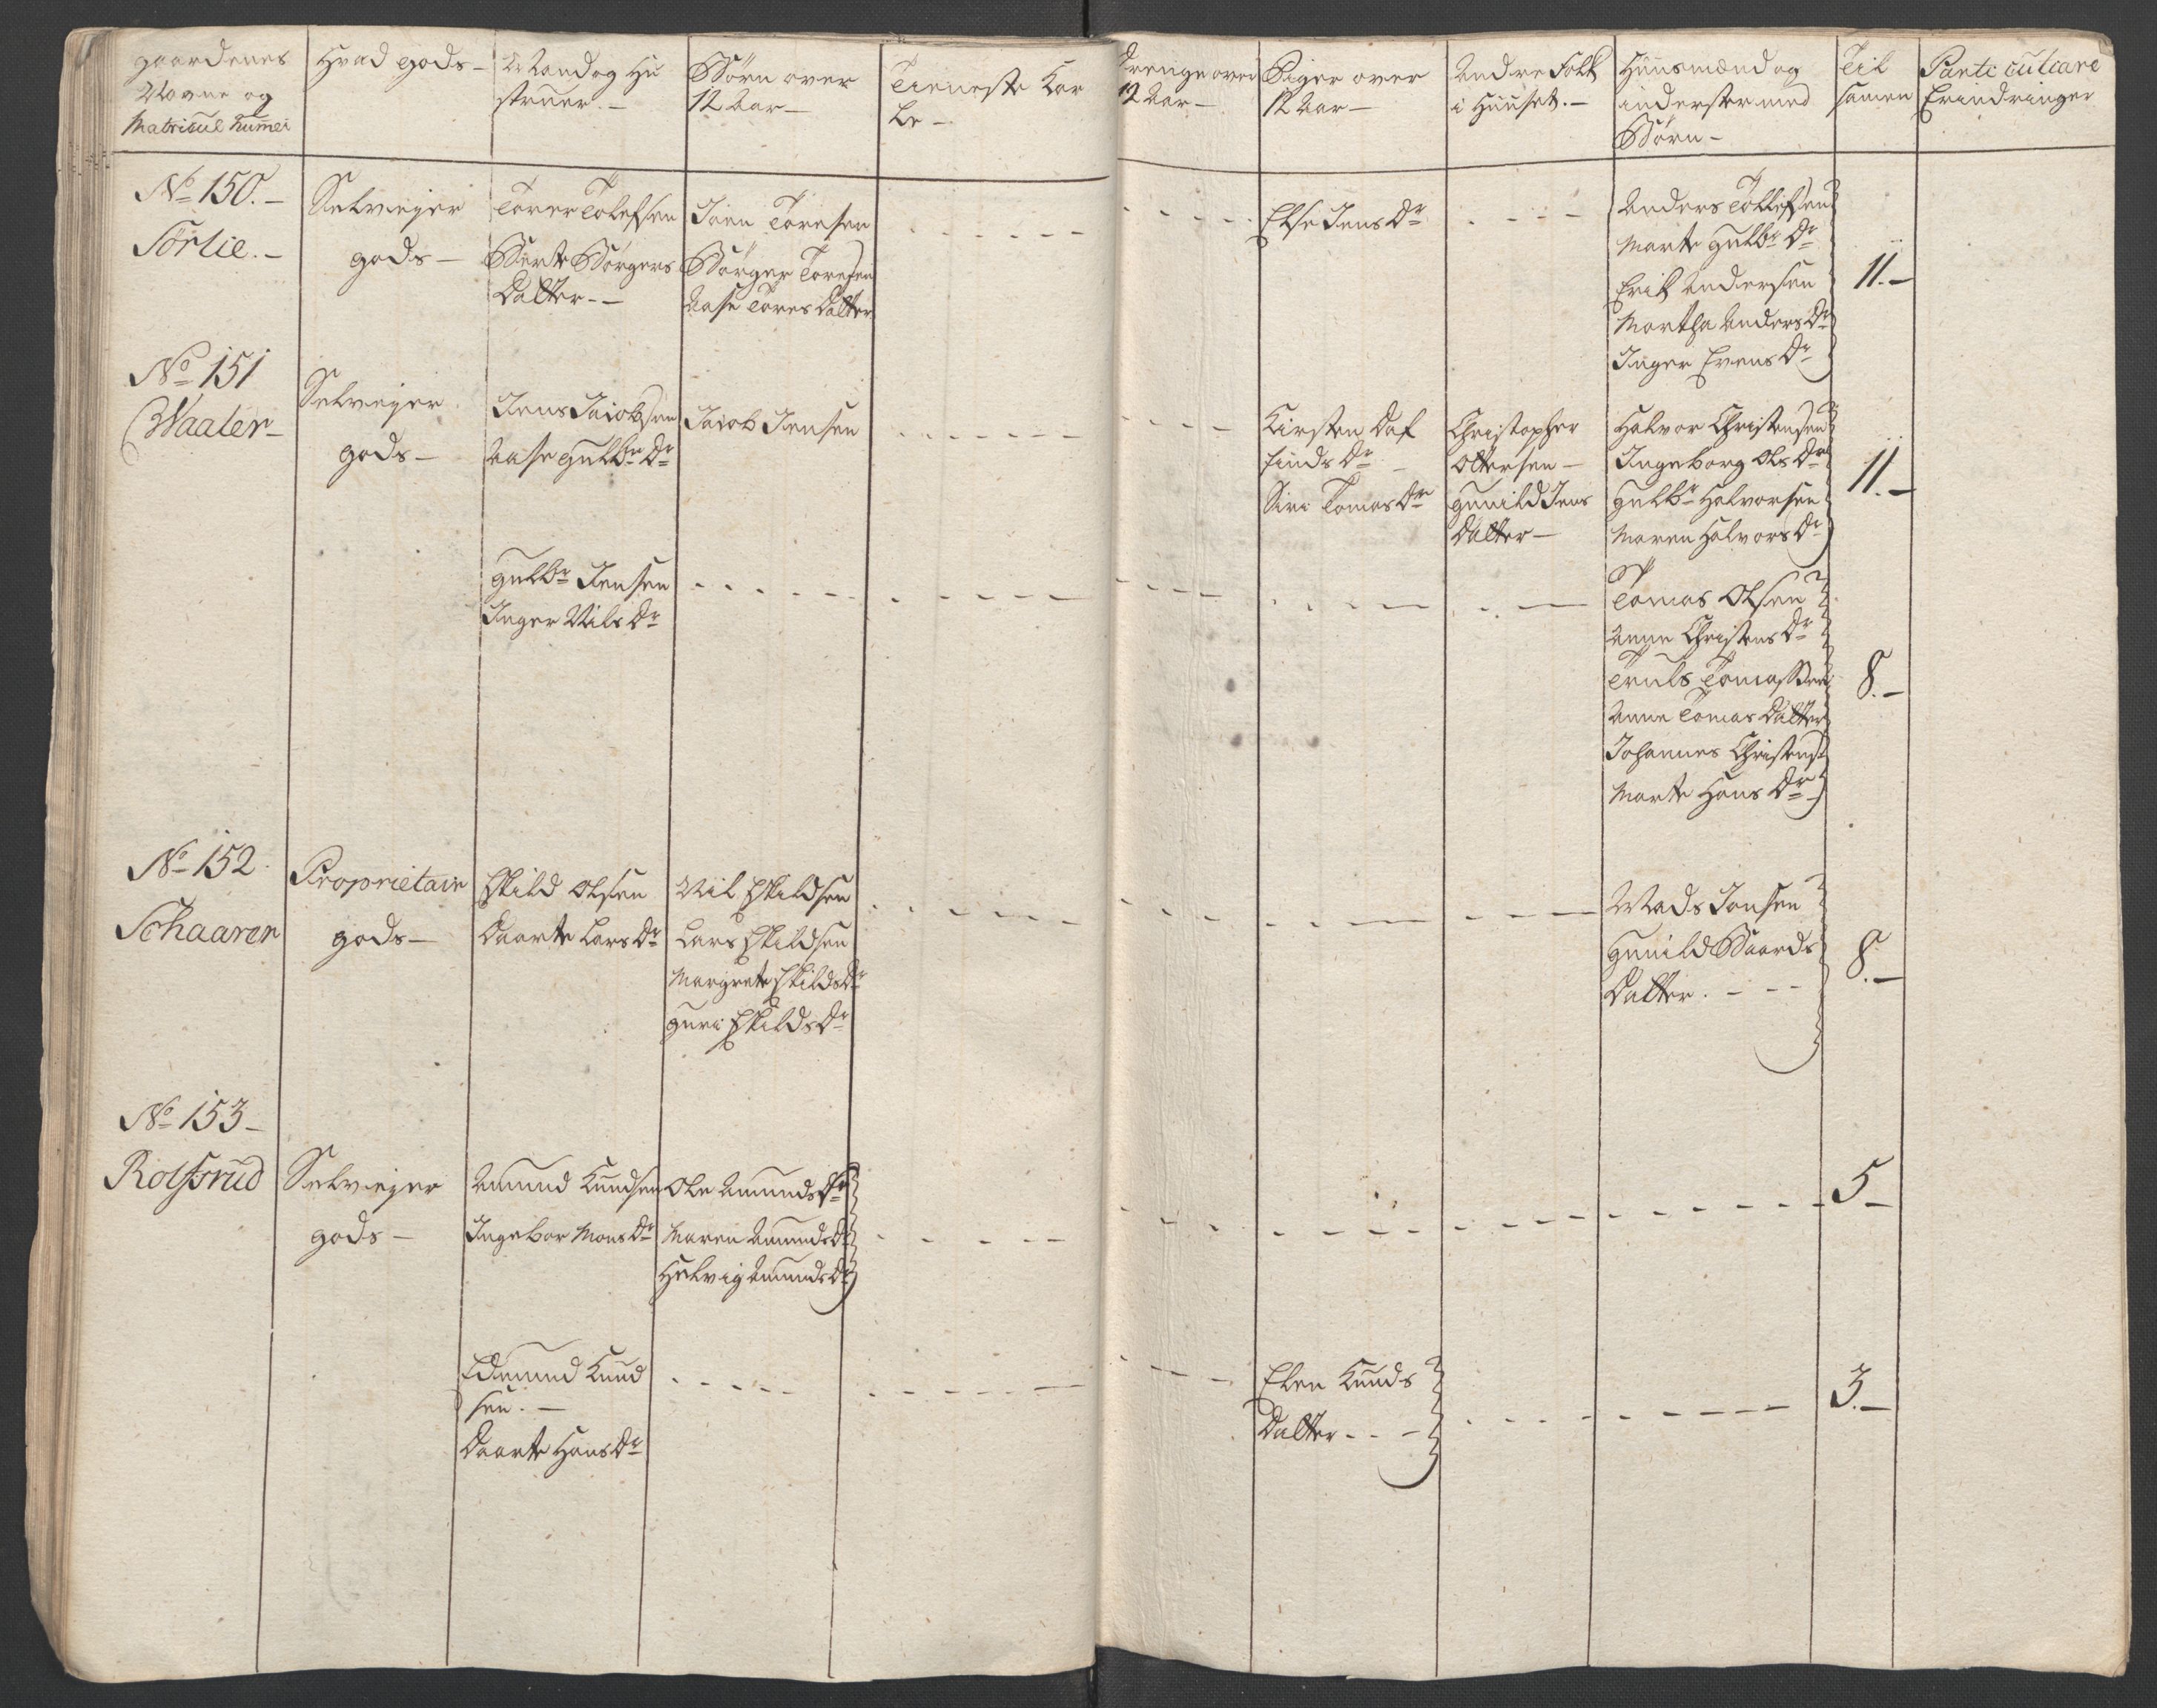 gaardenes
Navne og
Matricul Nummer
Hvad gods –
Mand og Hu
struer. –
Børn over
12 Aar –
Tieneste Kar
le –
Drenge over
12 Aar –
Piger over
12 Aar –
Andre Folk
i Huuset. –
Huusmænd og
inderster med
Børn –
Til
samen
Particulare
Erindringer
No 150. –
Sørlie. –
Selveyer
gods –
Torer Tolefsen
Berte Børgers
Datter – –
Joen Toresen
Børger Toresen
Aase Tores Datter
Else Jens Dr
Anders Tollefsen
Marte Gulbr Dr
Erik Andersen
Martha Anders Dr
Inger Evens Dr
11. –
No 151
Waaler –
Selveyer
gods –
Jens Jacobsen
Aase Gulbr Dr
Jacob Jensen
Kirsten Daf
finds Dr –
Siri Tomas Dr
Christopher
Ottersen –
Gunild Jens
Datter –
Halvor Christensen
Ingeborg Ols Dr
Gulbr Halvorsen
Maren Halvors Dr
11. –
Gulbr Jensen
Inger Nils Dr
Tomas Olsen
Anne Christens Dr
Truls Tomassen
Anne Tomas Datter
Johannes Christens
Marte Hans Dr
8. –
No 152
Schaarer
Proprietair
gods –
Eskild Olsen
Daarte Lars Dr
Nil Eskildsen
Lars Eskildsen
Margrete Eskilds Dr
Guri Eskilds Dr
Mads Jonsen
Gunild Baards
Datter. – – –
8. –
No 153 –
Rolfsrud
Selveyer
gods –
Amund Knudsen
Ingebor Mons Dr
Ole Amunds
Maren Amunds Dr
Helvig Amunds Dr
5 –
Edmund Knud
sen. –
Daarte Hans Dr
Elen Knuds
Datter – – –
3. –